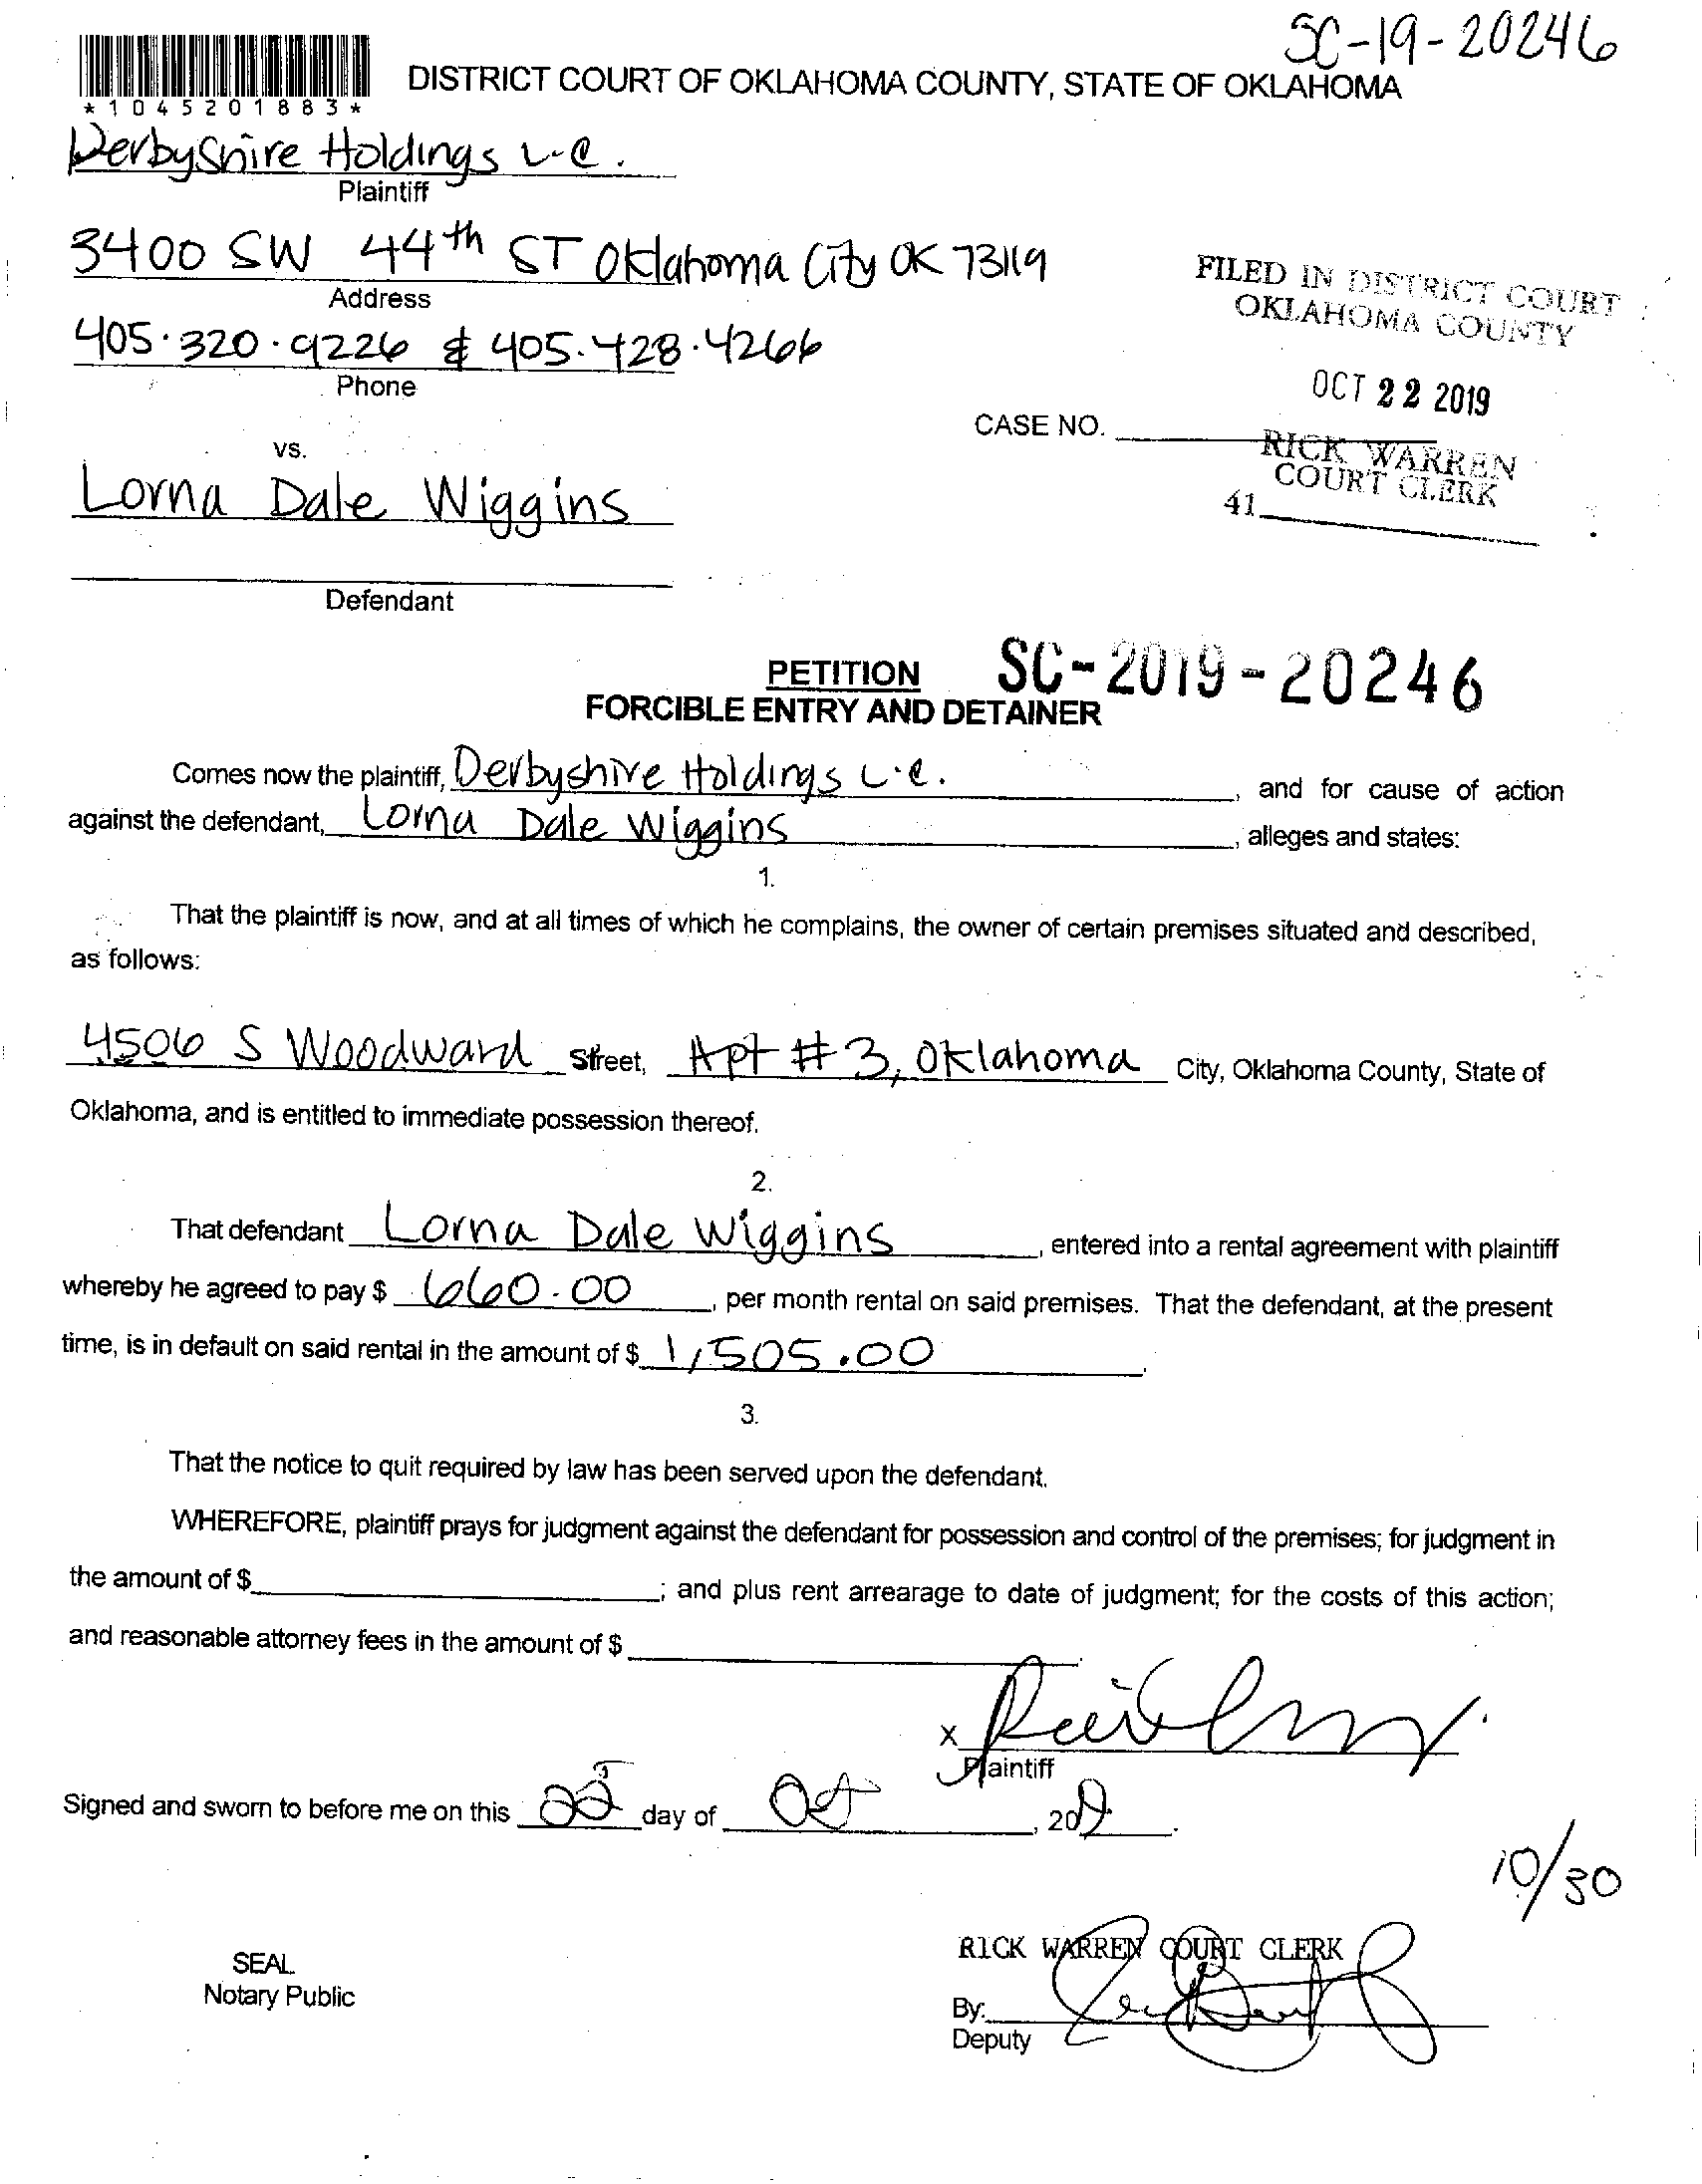 SC-19-20246
*1045201883*
DISTRICT COURT OF OKLAHOMA COUNTY, STATE OF OKLAHOMA
Derbyshire Holdings L.C.
Plaintiff
3400 SW 44th ST Oklahoma City OK 73119
Address
405.320.9226 & 405.428.4266
Phone
FILED IN DISTRICT COURT
OKLAHOMA COUNTY
OCT 22 2019
RICK WARREN
COURT CLERK
41
CASE NO.
vs.
Lorna Dale Wiggins
Defendant
PETITION
SC-2019-20246
FORCIBLE ENTRY AND DETAINER
Comes now the plaintiff, Derbyshire Holdings L.C. , and for cause of action
against the defendant, Lorna Dale Wiggins , alleges and states:
1.
That the plaintiff is now, and at all times of which he complains, the owner of certain premises situated and described,
as follows:
4506 S Woodward Street, Apt #3, Oklahoma City, Oklahoma County, State of
Oklahoma, and is entitled to immediate possession thereof.
2.
That defendant Lorna Dale Wiggins , entered into a rental agreement with plaintiff
whereby he agreed to pay $ 660.00 , per month rental on said premises. That the defendant, at the present
time, is in default on said rental in the amount of $ 1,505.00 .
3.
That the notice to quit required by law has been served upon the defendant.
WHEREFORE, plaintiff prays for judgment against the defendant for possession and control of the premises; for judgment in
the amount of $ ; and plus rent arrearage to date of judgment; for the costs of this action;
and reasonable attorney fees in the amount of $
X
Plaintiff
Signed and sworn to before me on this 22 day of Oct , 2019 .
10/30
SEAL
Notary Public
RICK WARREN COURT CLERK
By:
Deputy